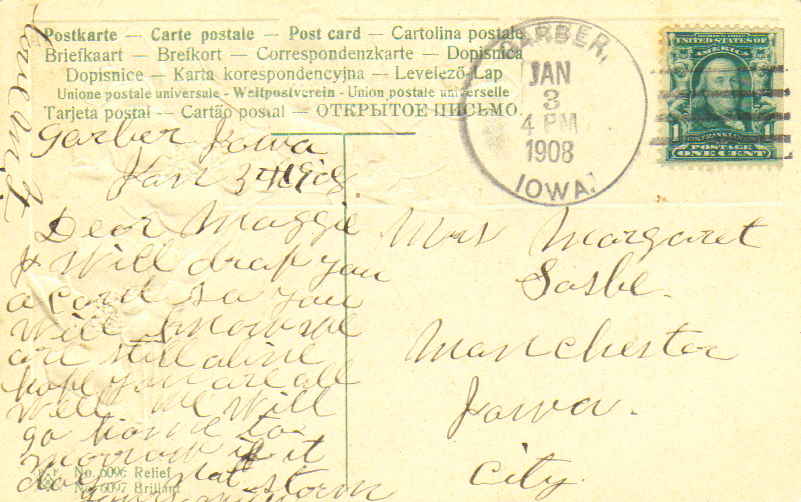 Postkarte — Carte postale — Post card — Cartolina postale
Briefkaart — Brefkort — Correspondenzkarte — Dopisnica
Dopisnice — Karta korespondencyjna — Levelező-Lap
Unione postale universale - Weltpostverein - Union postale universelle
Tarjeta postal — Cartão postal — ОТКРЫТОЕ ПИСЬМО.
GARBER,
JAN
3
4 PM
1908
IOWA.
UNITED STATES OF
AMERICA
1 1
POSTAGE
ONE CENT
Garber Iowa
Jan 3 1908
Dear Maggie
I Will drop you
a card so you
Will know we
are still alive
hope you are all
well we Will
go home to
morrow if it
does not storm
Mrs Margaret
Sosbe.
Manchester
Iowa.
City.
No. 6096 Relief
No. 6097 Brillant